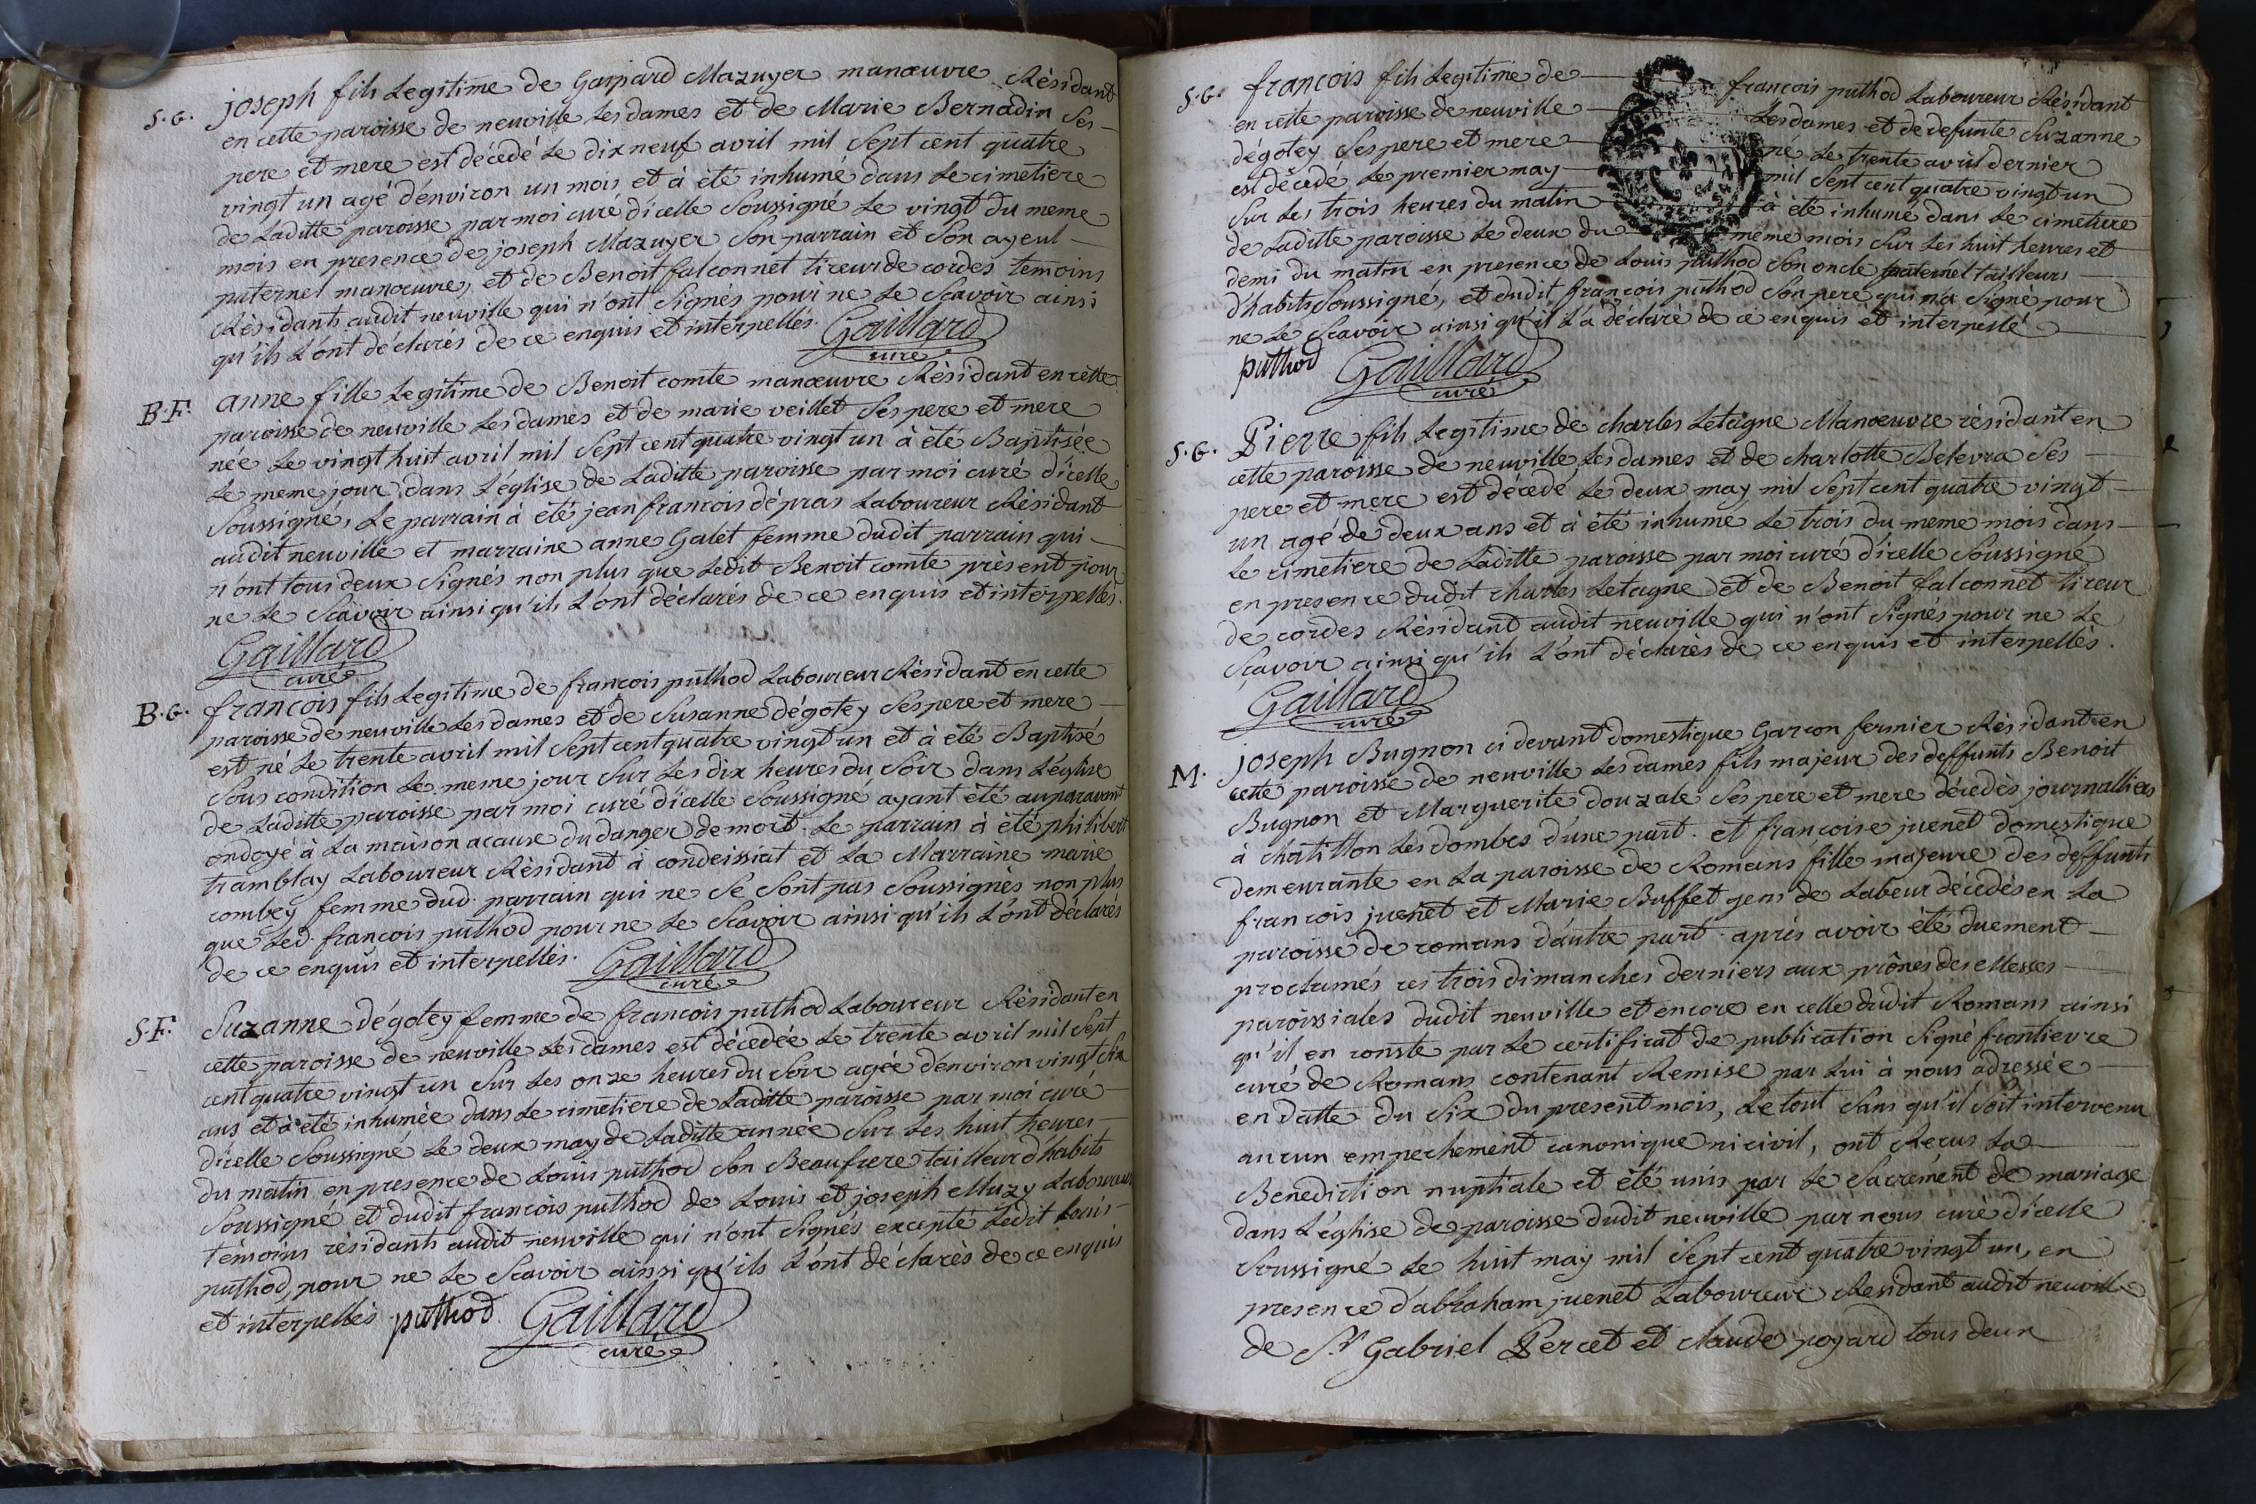 S.G. joseph fils Legitime de Gaspard Mazuyer manœuvre Résidant
en cette paroisse de neuville Les dames et de Marie Bernadin Ses
pere et mere est décedé Le dix neuf avril mil Sept cent quatre
vingt un agé d'environ un mois et à été inhumé dans Le cimetiere
de Laditte paroisse par moi curé d'icelle Soussigné Le vingt du meme
mois en presence de joseph Mazuyer Son parrain et Son ayeul
paternel manœuvre, et de Benoit falconnet tireur de cordes temoins
Résidants audit neuville qui n'ont Signés pour ne Le Scavoir ainsi
qu'ils L'ont déclarés de ce enquis et interpellés. Gaillard
curé
B.F. anne fille Legitime de Benoit comte manœuvre Résidant en cette
paroisse de neuville Les dames et de marie veillet Ses pere et mere
née Le vingt huit avril mil Sept cent quatre vingt un à été Baptisée
Le meme jour dans L'église de Laditte paroisse par moi curé d'icelle
Soussigné, Le parrain à été jean francois dépras Laboureur Résidant
audit neuville et marraine anne Galet femme dudit parrain qui
n'ont tous deux Signés non plus que Ledit Benoit comte présent pour
ne Le Scavoir ainsi qu'ils L'ont déclarés de ce enquis et interpellés.
Gaillard
curé
B.G. francois fils Legitime de francois puthod Laboureur Résidant en cette
paroisse de neuville Les dames et de Susanne dégotey Ses pere et mere
est né Le trente avril mil Sept cent quatre vingt un et à été Baptisé
Sous condition Le meme jour Sur Les dix heures du Soir dans L'église
de Laditte paroisse par moi curé d'icelle Soussigné ayant été auparavant
ondoyé à La maison acause du danger de mort. Le parrain à été philibert
tramblay Laboureur Résidant à condeissiat et La Marraine marie
combey femme dud. parrain qui ne Se Sont pas Soussignés non plus
que Led. francois puthod pour ne Le Scavoir ainsi qu'ils L'ont déclarés
de ce enquis et interpellés. Gaillard
curé
S.F. Suzanne dégotey femme de francois puthod Laboureur Résidant en
cette paroisse de neuville Les dames est décedée Le trente avril mil Sept
cent quatre vingt un Sur Les onze heures du Soir agée d'environ vingt Six
ans et à été inhumée dans Le cimetiere de Laditte paroisse par moi curé
d'icelle Soussigné Le deux may de Laditte année Sur Les huit heures
du matin en presence de Louis puthod Son Beaufrere tailleur d'habits
Soussigné et dudit francois puthod de Louis et joseph Muzy Laboureurs
témoins résidants audit neuville qui n'ont Signés excepté Ledit Louis
puthod, pour ne Le Scavoir ainsi qu'ils L'ont déclarés de ce enquis
et interpellés puthod Gaillard
curé
S.G. francois fils Legitime de francois puthod Laboureur Résidant
en cette paroisse de neuville Les dames et de defunte Suzanne
dégotey Ses pere et mere né Le trente avril dernier
est décedé Le premier may mil Sept cent quatre vingt un
Sur Les trois heures du matin à été inhumé dans Le cimetiere
de Laditte paroisse Le deux du même mois Sur Les huit heures et
demi du matin en presence de Louis puthod Son oncle paternel tailleur
d'habits Soussigné, et dudit francois puthod Son pere qui n'a Signé pour
ne Le Scavoir ainsi qu'il L'a déclaré de ce enquis et interpellé
puthod Gaillard
curé
S.G. Pierre fils Legitime de charles Letagne Manœuvre résidant en
cette paroisse de neuville Les dames et de charlotte Belevra Ses
pere et mere est décedé Le deux may mil Sept cent quatre vingt
un agé de deux ans et à été inhumé Le trois du meme mois dans
Le cimetiere de Laditte paroisse par moi curé d'icelle Soussigné
en presence dudit charles Letagne et de Benoit falconnet tireur
de cordes Résidant audit neuville qui n'ont Signés pour ne Le
Scavoir ainsi qu'ils L'ont déclarés de ce enquis et interpellés.
Gaillard
curé
M. joseph Bugnon ci devant domestique Garcon fermier Résidant en
cette paroisse de neuville Les dames fils majeur des deffunts Benoit
Bugnon et Marguerite douzale Ses pere et mere décedés journalliers
à chatillon Les dombes d'une part. et francoise juenet domestique
demeurante en La paroisse de Romans fille majeure des deffunts
francois juenet et Marie Buffet gens de Labeur décedés en La
paroisse de romans d'autre part. après avoir été duement
proclamés ces trois dimanches derniers aux prônes des Messes
paroissiales dudit neuville et encore en celle dudit Romans ainsi
qu'il en conste par Le certificat de publication Signé frontievre
curé de Romans contenant Remise par Lui à nous adressée
en datte du Six du present mois, Le tout Sans qu'il Soit intervenu
aucun empechement canonique ni civil, ont Recus La
Benediction nuptiale et été unis par Le Sacrément de mariage
dans L'église de paroisse dudit neuville par nous curé d'icelle
Soussigné Le huit may mil Sept cent quatre vingt un, en
presence d'abraham juenet Laboureur Résidant audit neuville
de Sr Gabriel Percet et claude pogard tous deux